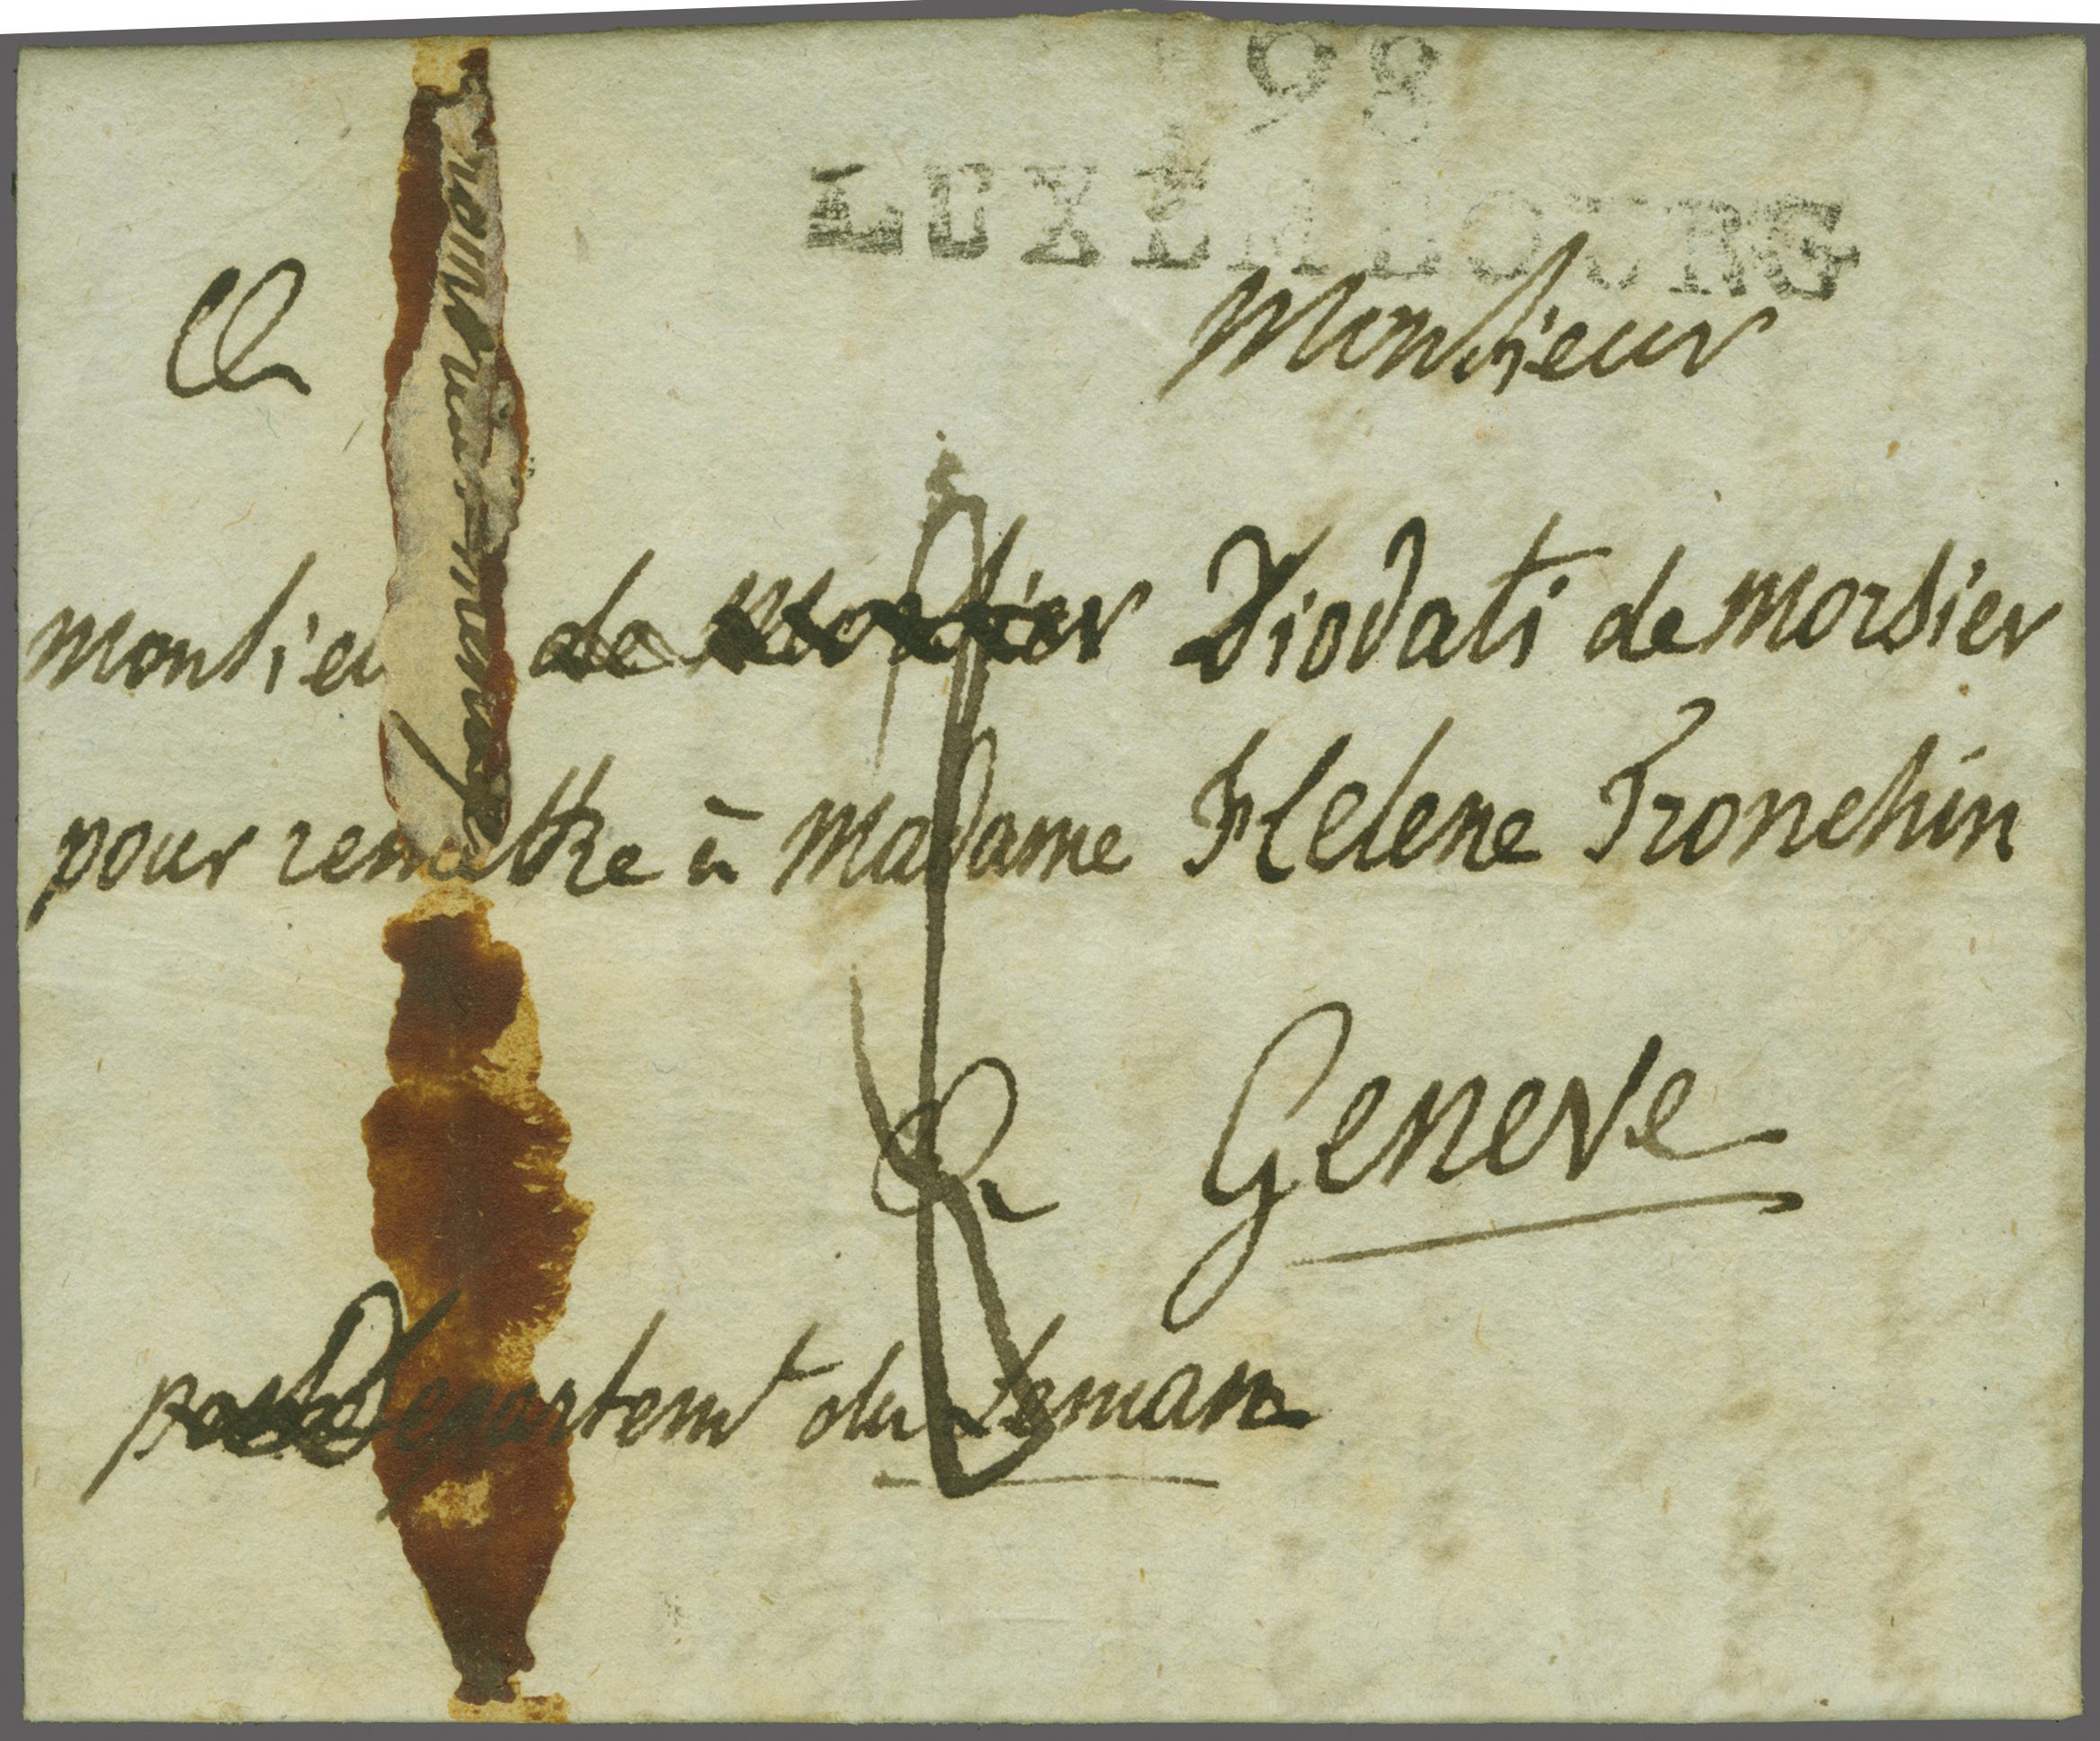 98
LUXEMBOURG
A Monsieur
Monsieur de Morsier Diodati de Morsier
pour remettre à Madame Helene Tronchin
à Geneve
Departemt du Leman